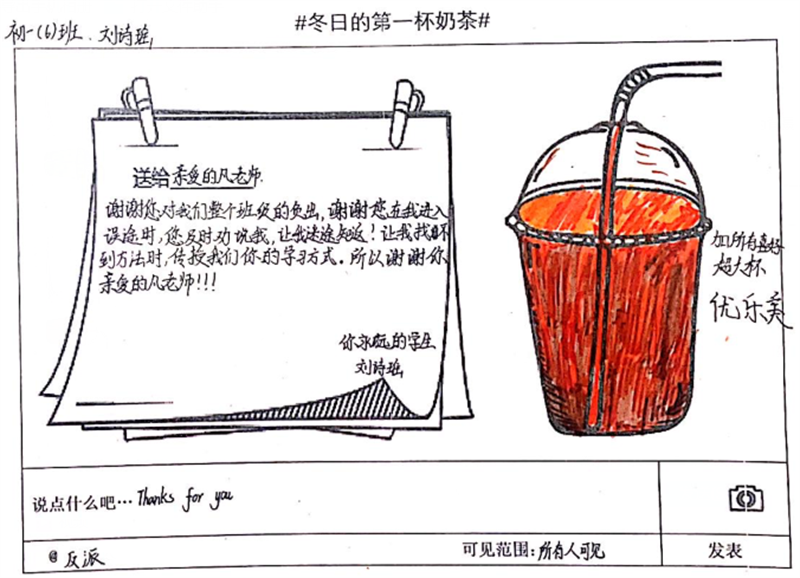 #冬日的第一杯奶茶#
初一(6)班 刘诗瑶
送给亲爱的凡老师
谢谢您对我们整个班级的负出,谢谢您在我进入
误途时,您及时劝说我,让我迷途知返!让我找不
到方法时,传授我们你的学习方式.所以谢谢你
亲爱的凡老师!!!
你永远的学生
刘诗瑶
加所有喜好
超大杯
优乐美
说点什么吧… Thanks for you
@反派
可见范围:所有人可见
发表